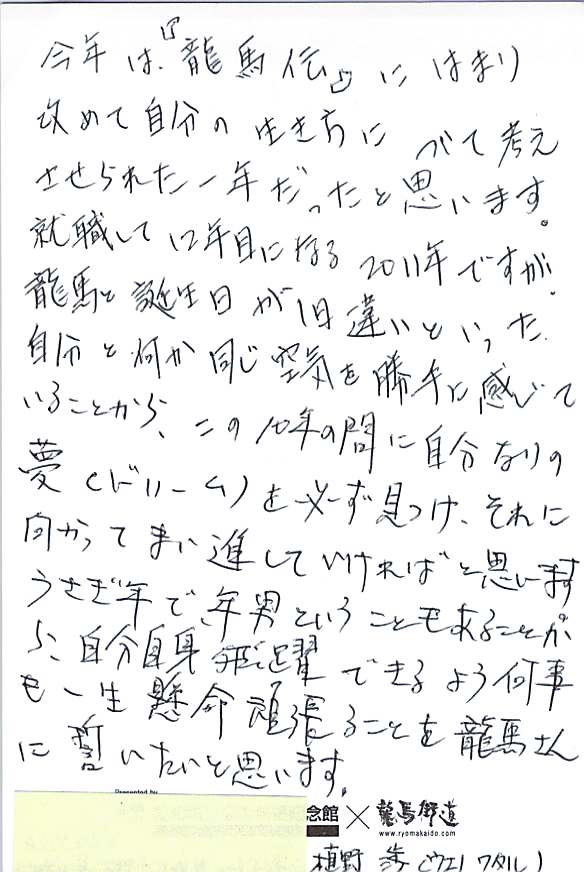 今年は、『龍馬伝』にはまり
改めて自分の生き方につて考え
させられた一年だったと思います。
就職して12年目になる2011年ですが、
龍馬と誕生日が1日違いといった
自分と何か同じ空気を勝手に感じて
いることから、この10年の間に自分なりの
夢(ドリーム)を必ず見つけ、それに
向かってまい進していければと思います
うさぎ年で、年男ということも来ることか
ら、自分自身飛躍できるよう何事
も一生懸命頑張ることを龍馬さん
に誓いたいと思います。
Presented by
念館×龍馬街道
www.ryomakaido.com
植野 歩(ウエノ ワタル)